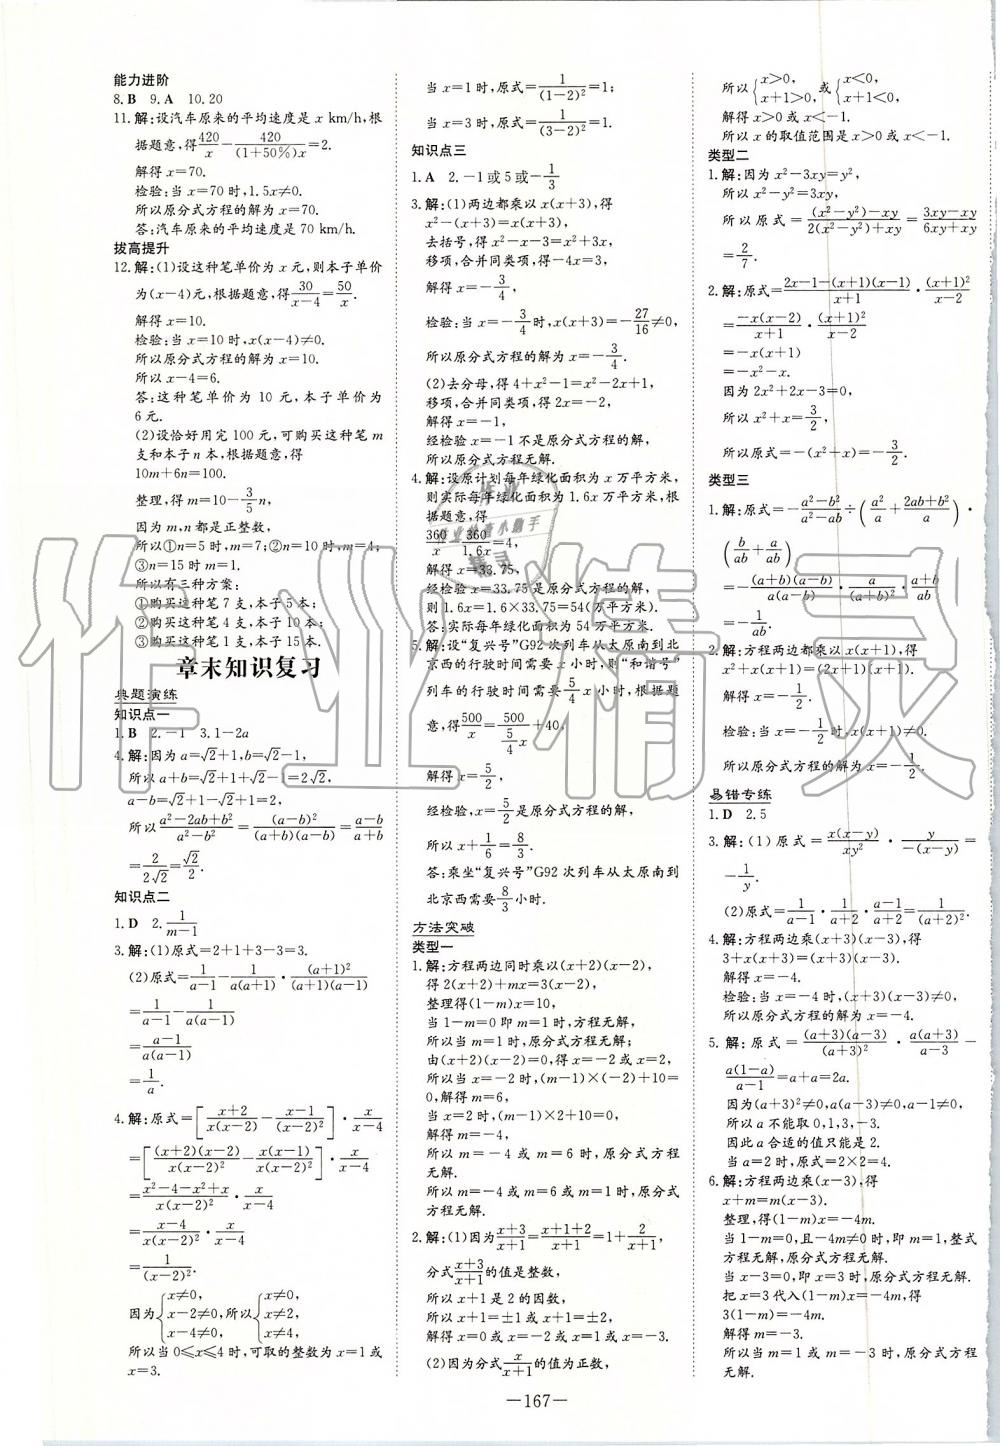 能力进阶
8. B 9. A 10. 20
11. 解:设汽车原来的平均速度是 x km/h,根
据题意,得420/x－420/((1+50%)x)=2.
解得 x=70.
检验:当 x=70 时,1.5x≠0.
所以原分式方程的解为 x=70.
答:汽车原来的平均速度是 70 km/h.
拔高提升
12. 解:(1)设这种笔单价为 x 元,则本子单价
为(x－4)元,根据题意,得30/(x－4)=50/x.
解得 x=10.
检验:当 x=10 时,x(x－4)≠0.
所以原分式方程的解为 x=10.
所以 x－4=6.
答:这种笔单价为 10 元,本子单价为
6 元.
(2)设恰好用完 100 元,可购买这种笔 m
支和本子 n 本,根据题意,得
10m+6n=100.
整理,得 m=10－3/5 n,
因为 m,n 都是正整数,
所以①n=5 时,m=7;②n=10 时,m=4;
③n=15 时 m=1.
所以有三种方案:
①购买这种笔 7 支,本子 5 本;
②购买这种笔 4 支,本子 10 本;
③购买这种笔 1 支,本子 15 本.
章末知识复习
典题演练
知识点一
1. B 2. －1 3. 1－2a
4. 解:因为 a=√2+1,b=√2－1,
所以 a+b=√2+1+√2－1=2√2,
a－b=√2+1－√2+1=2.
所以(a²－2ab+b²)/(a²－b²)=(a－b)²/((a+b)(a－b))=(a－b)/(a+b)
=2/(2√2)=√2/2.
知识点二
1. D 2. 1/(m－1)
3. 解:(1)原式=2+1+3－3=3.
(2)原式=1/(a－1)－1/(a(a+1))·(a+1)²/((a+1)(a－1))
=1/(a－1)－1/(a(a－1))
=(a－1)/(a(a－1))
=1/a.
4. 解:原式=[(x+2)/(x(x－2))－(x－1)/(x－2)²]·x/(x－4)
=[(x+2)(x－2)/(x(x－2)²)－x(x－1)/(x(x－2)²)]·x/(x－4)
=(x²－4－x²+x)/(x(x－2)²)·x/(x－4)
=(x－4)/(x(x－2)²)·x/(x－4)
=1/(x－2)².
因为{x≠0, x－2≠0, x－4≠0, 所以{x≠0, x≠2, x≠4,
所以当 0≤x≤4 时,可取的整数为 x=1 或
x=3.
当 x=1 时,原式=1/(1－2)²=1;
当 x=3 时,原式=1/(3－2)²=1.
知识点三
1. A 2. －1 或 5 或－1/3
3. 解:(1)两边都乘以 x(x+3),得
x²－(x+3)=x(x+3),
去括号,得 x²－x－3=x²+3x,
移项,合并同类项,得－4x=3,
解得 x=－3/4,
检验:当 x=－3/4时,x(x+3)=－27/16≠0,
所以原分式方程的解为 x=－3/4.
(2)去分母,得 4+x²－1=x²－2x+1,
移项,合并同类项,得 2x=－2,
解得 x=－1,
经检验 x=－1 不是原分式方程的解,
所以原分式方程无解.
4. 解:设原计划每年绿化面积为 x 万平方米,
则实际每年绿化面积为 1.6x 万平方米,根
据题意,得
360/x－360/1.6x=4,
解得 x=33.75,
经检验 x=33.75 是原分式方程的解,
则 1.6x=1.6×33.75=54(万平方米).
答:实际每年绿化面积为 54 万平方米.
5. 解:设“复兴号”G92 次列车从太原南到北
京西的行驶时间需要 x 小时,则“和谐号”
列车的行驶时间需要5/4 x 小时,根据题
意,得500/x=500/(5/4 x)+40,
解得 x=5/2,
经检验,x=5/2是原分式方程的解,
所以 x+1/6=8/3.
答:乘坐“复兴号”G92 次列车从太原南到
北京西需要8/3小时.
方法突破
类型一
1. 解:方程两边同时乘以(x+2)(x－2),
得 2(x+2)+mx=3(x－2),
整理得(1－m)x=10,
当 1－m=0 即 m=1 时,方程无解,
所以当 m=1 时,原分式方程无解;
由(x+2)(x－2)=0,得 x=－2 或 x=2,
所以当 x=－2 时,(m－1)×(－2)+10=
0,解得 m=6,
当 x=2 时,(m－1)×2+10=0,
解得 m=－4,
所以 m=－4 或 m=6 时,原分式方程
无解.
所以 m=－4 或 m=6 或 m=1 时,原分式
方程无解.
2. 解:(1)因为(x+3)/(x+1)=(x+1+2)/(x+1)=1+2/(x+1),
分式(x+3)/(x+1)的值是整数,
所以 x+1 是 2 的因数,
所以 x+1=±1 或 x+1=±2,
解得 x=0 或 x=－2 或 x=1 或 x=－3.
(2)因为分式x/(x+1)的值为正数,
所以{x>0, x+1>0,或{x<0, x+1<0,
解得 x>0 或 x<－1.
所以 x 的取值范围是 x>0 或 x<－1.
类型二
1. 解:因为 x²－3xy=y²,
所以 x²－y²=3xy,
所以原式=((x²－y²)－xy)/(2(x²－y²)+xy)=(3xy－xy)/(6xy+xy)
=2/7.
2. 解:原式=(2x－1－(x+1)(x－1))/(x+1)·(x+1)²/(x－2)
=－x(x－2)/(x+1)·(x+1)²/(x－2)
=－x(x+1)
=－x²－x.
因为 2x²+2x－3=0,
所以 x²+x=3/2,
所以原式=－(x²+x)=－3/2.
类型三
1. 解:原式=－(a²－b²)/(a²－ab)÷(a²/a+(2ab+b²)/a)·
(b/ab+a/ab)
=－(a+b)(a－b)/(a(a－b))·a/(a+b)²·(a+b)/ab
=－1/ab.
2. 解:方程两边都乘以 x(x+1),得
x²+x(x+1)=(2x+1)(x+1),
解得 x=－1/2.
检验:当 x=－1/2时,x(x+1)≠0.
所以原分式方程的解为 x=－1/2.
易错专练
1. D 2. 5
3. 解:(1)原式=x(x－y)/xy²·y/(－(x－y))=
－1/y.
(2)原式=1/(a－1)·1/(a+2)·(a－1)/(a+2)=1/(a+2)².
4. 解:方程两边乘(x+3)(x－3),得
3+x(x+3)=(x+3)(x－3),
解得 x=－4.
检验:当 x=－4 时,(x+3)(x－3)≠0,
所以原分式方程的解为 x=－4.
5. 解:原式=(a+3)(a－3)/(a+3)²·a(a+3)/(a－3)－
a(1－a)/(a－1)=a+a=2a.
因为(a+3)²≠0,a(a－3)≠0,a－1≠0,
所以 a 不能取 0,1,3,－3.
因此 a 合适的值只能是 2.
当 a=2 时,原式=2×2=4.
6. 解:方程两边乘(x－3),得
x+m=m(x－3).
整理,得(1－m)x=－4m.
当 1－m=0,且－4m≠0 时,即 m=1,整式
方程无解,原分式方程无解.
当 x－3=0,即 x=3 时,原分式方程无解.
把 x=3 代入(1－m)x=－4m,得
3(1－m)=－4m.
解得 m=－3.
所以当 m=1 或 m=－3 时,原分式方程
无解.
—167—
作业精灵